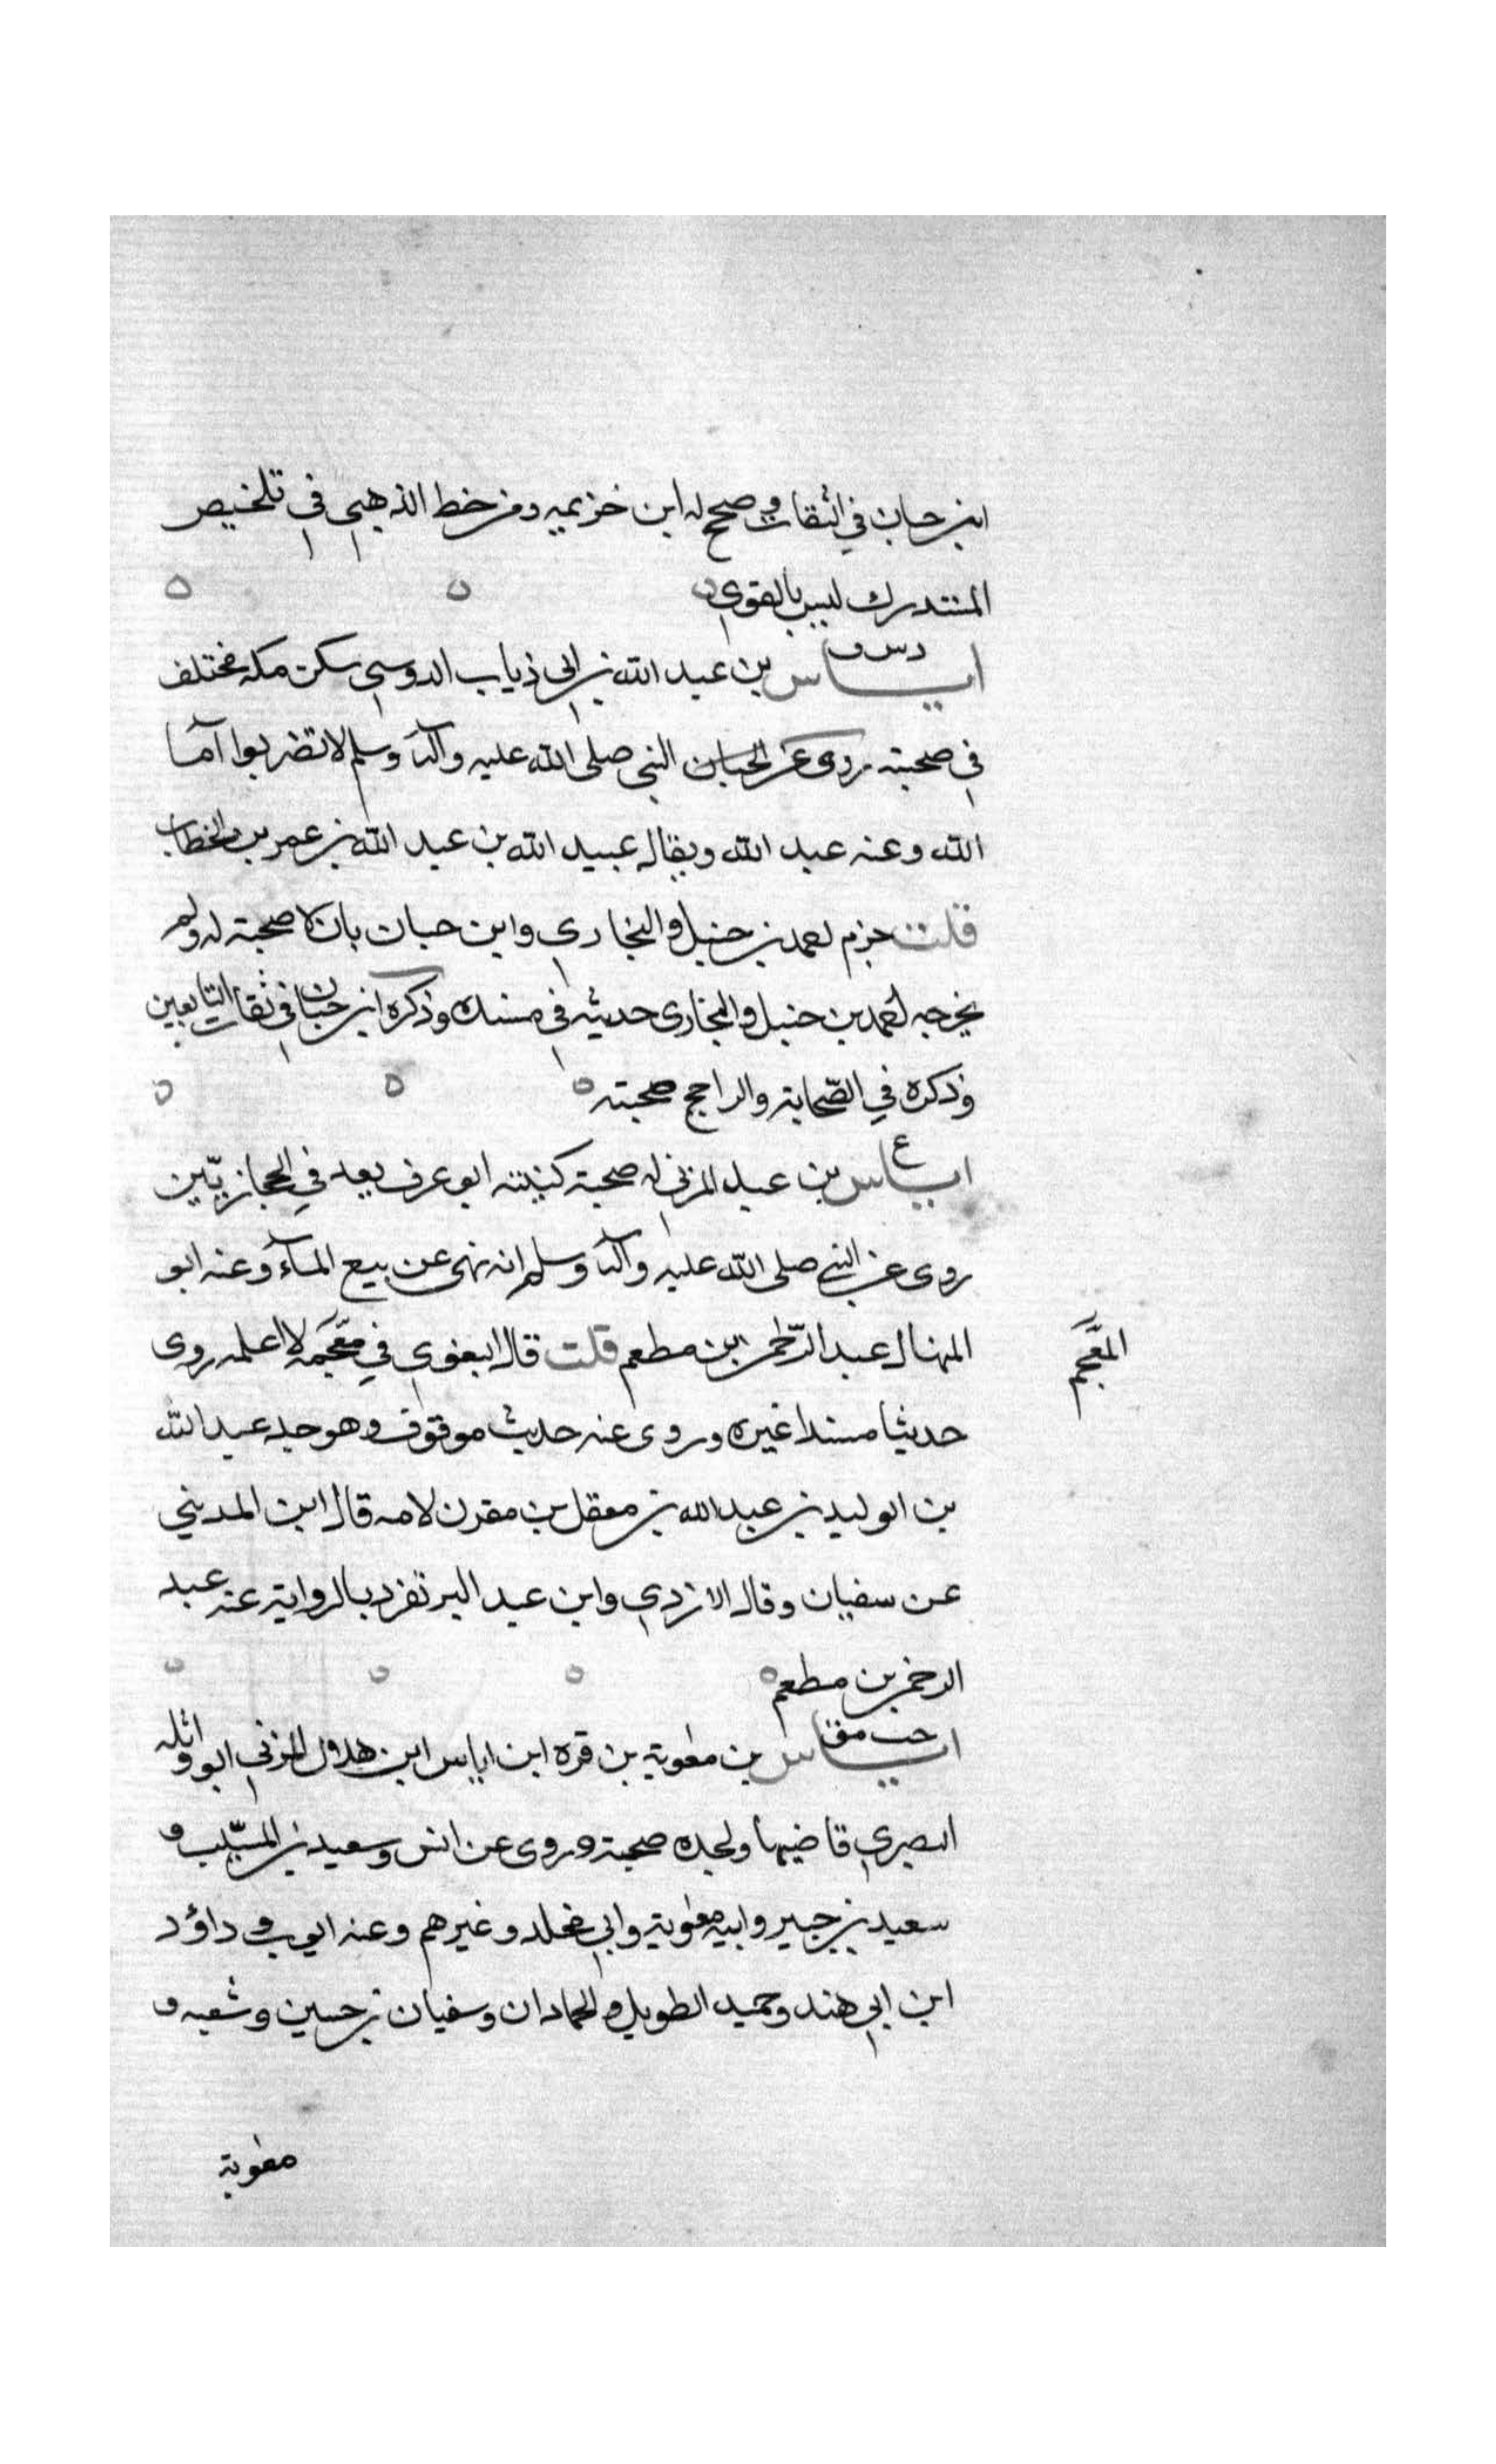 ابن حبان في الثقات وصحح له ابن خزيمه ومن خط الذهبي في تلخيص
المستدرك ليس بالقوي
د س ق
اياس بن عبد الله بن ابى ذياب الدوسي سكن مكه مختلف
في صحبته روى عن النبي صلى الله عليه وآله وسلم لا تضربوا آما
الله وعنه عبد الله ويقال عبيد الله بن عبد الله بن عمر بن الخطاب
قلت جزم احمد بن حنبل والبخاري وابن حبان بان لا صحبة له ولم
يخرجه احمد بن حنبل والبخاري حديثه في مسنده وذكره ابن حبان في ثقات التابعين
وذكره في الصّحابة والراجح صحبته
ع
اياس بن عبد المزني له صحبة كنيته ابو عوف يعد في الحجازيّين
روى عن النبي صلى الله عليه وآله وسلم انه نهى عن بيع المآء وعنه ابو
المنهال عبد الرّحمن بن مطعم قلت قال البغوي في معجمه لا اعلمه روى
المعجم
حديثا مسندا غيره وروى عنه حديث موقوف وهو جد عبد الله
بن الوليد بن عبد الله بن معقل بن مقرن لامه قال ابن المديني
عن سفيان وقال الازدي وابن عبد البر تفرد بالرواية عنه عبد
الرحمن بن مطعم
خت مق
اياس بن معوية بن قره ابن اياس ابن هلال المزني ابو واثله
البصري قاضيها ولجده صحبة وروى عن انس وسعيد بن المسيّب و
سعيد بن جبير وابيه معوية وابي مخلد وغيرهم وعنه ايوب و داؤد
ابن ابي هند وحميد الطويل والحمادان وسفيان بن حسين وشعبه و
معوية